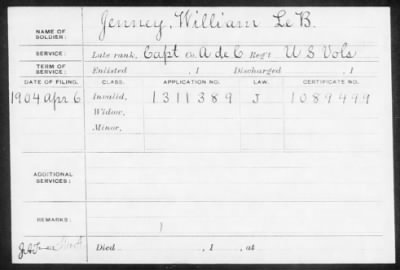 NAME OF SOLDIER: Jenney, William Le B.
SERVICE: Late rank, Capt Co. A de C Reg't U S Vols
TERM OF SERVICE: Enlisted , 1 Discharged , 1
DATE OF FILING. CLASS. APPLICATION NO. LAW. CERTIFICATE NO.
1904 Apr 6 Invalid, 1311389 J 1089499
Widow,
Minor,
ADDITIONAL SERVICES:
REMARKS:
Died , 1 , at